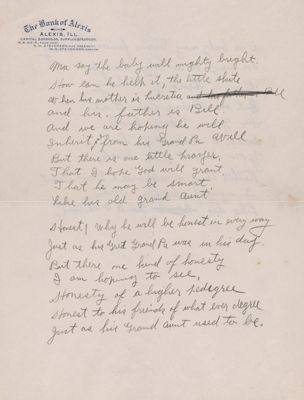 The Bank of Alexis
ALEXIS, ILL.
You say the baby well mighty bright.
How can he help it, the little skite
When his mother is Lucretia
and his father is Bill.
And we are hoping he will
Inherit, from his Grand Pa Avell
But there is one little prayer,
That I hope God will grant,
That he may be smart,
Like his old grand Aunt
Honest! Why he will be honest in every way
Just as his Gret Grand Pa was in his day.
But there one kind of honesty
I am hoping to see,
Honesty of a higher pedegree
Honest to his friends of what ever degree
Just as his Grand Aunt used to be.